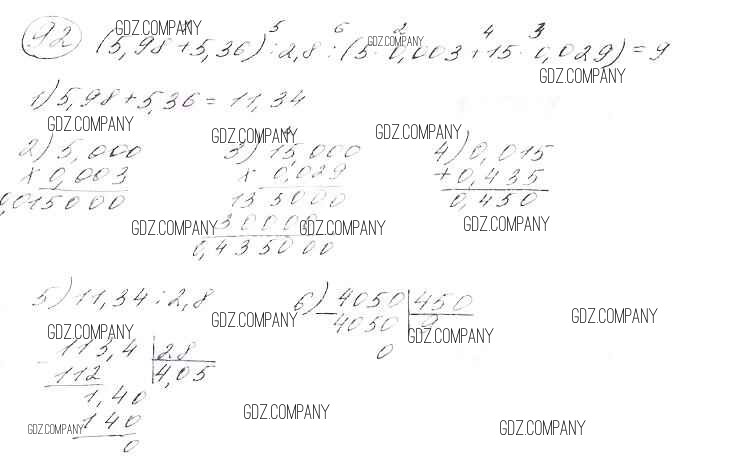 92 (5,98 + 5,36) : 2,8 : (5 · 0,003 + 15 · 0,029) = 9
1 5 6 2 4 3
GDZ.COMPANY GDZ.COMPANY GDZ.COMPANY
1) 5,98 + 5,36 = 11,34
GDZ.COMPANY GDZ.COMPANY GDZ.COMPANY
2) 5,000 3) 15,000 4) 0,015
x 0,003 x 0,029 + 0,435
0,015000 135000 0,450
GDZ.COMPANY 30000 GDZ.COMPANY GDZ.COMPANY
0,435000
5) 11,34 : 2,8 6) 4050 450
GDZ.COMPANY GDZ.COMPANY 4050 9 GDZ.COMPANY GDZ.COMPANY
113,4 28 0
112 4,05
1,40
140 GDZ.COMPANY
GDZ.COMPANY 0 GDZ.COMPANY